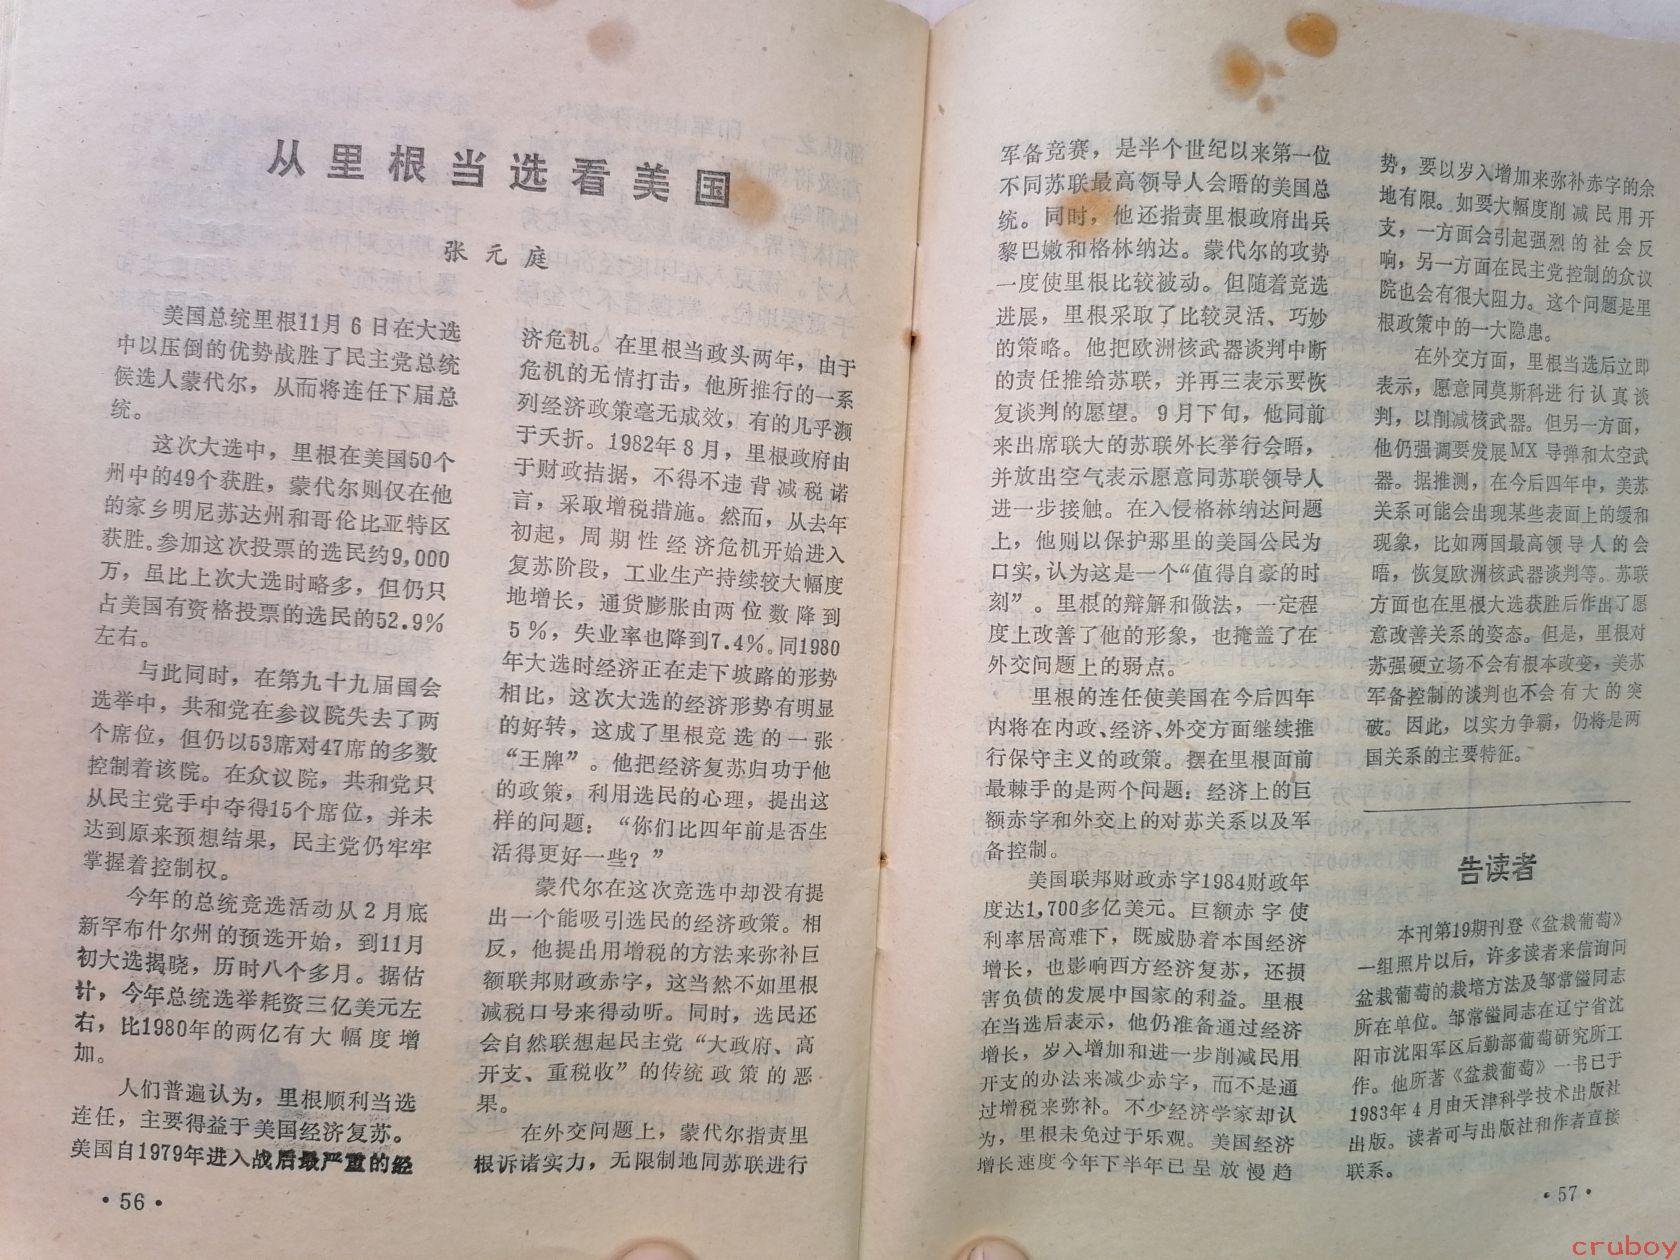 从里根当选看美国
张元庭
美国总统里根11月6日在大选
中以压倒的优势战胜了民主党总统
候选人蒙代尔，从而将连任下届总
统。
这次大选中，里根在美国50个
州中的49个获胜，蒙代尔则仅在他
的家乡明尼苏达州和哥伦比亚特区
获胜。参加这次投票的选民约9,000
万，虽比上次大选时略多，但仍只
占美国有资格投票的选民的52.9%
左右。
与此同时，在第九十九届国会
选举中，共和党在参议院失去了两
个席位，但仍以53席对47席的多数
控制着该院。在众议院，共和党只
从民主党手中夺得15个席位，并未
达到原来预想结果，民主党仍牢牢
掌握着控制权。
今年的总统竞选活动从2月底
新罕布什尔州的预选开始，到11月
初大选揭晓，历时八个多月。据估
计，今年总统选举耗资三亿美元左
右，比1980年的两亿有大幅度增
加。
人们普遍认为，里根顺利当选
连任，主要得益于美国经济复苏。
美国自1979年进入战后最严重的经
济危机。在里根当政头两年，由于
危机的无情打击，他所推行的一系
列经济政策毫无成效，有的几乎濒
于夭折。1982年8月，里根政府由
于财政拮据，不得不违背减税诺
言，采取增税措施。然而，从去年
初起，周期性经济危机开始进入
复苏阶段，工业生产持续较大幅度
地增长，通货膨胀由两位数降到
5%，失业率也降到7.4%。同1980
年大选时经济正在走下坡路的形势
相比，这次大选的经济形势有明显
的好转，这成了里根竞选的一张
“王牌”。他把经济复苏归功于他
的政策，利用选民的心理，提出这
样的问题：“你们比四年前是否生
活得更好一些？”
蒙代尔在这次竞选中却没有提
出一个能吸引选民的经济政策。相
反，他提出用增税的方法来弥补巨
额联邦财政赤字，这当然不如里根
减税口号来得动听。同时，选民还
会自然联想起民主党“大政府、高
开支、重税收”的传统政策的恶
果。
在外交问题上，蒙代尔指责里
根诉诸实力，无限制地同苏联进行
·56·
军备竞赛，是半个世纪以来第一位
不同苏联最高领导人会晤的美国总
统。同时，他还指责里根政府出兵
黎巴嫩和格林纳达。蒙代尔的攻势
一度使里根比较被动。但随着竞选
进展，里根采取了比较灵活、巧妙
的策略。他把欧洲核武器谈判中断
的责任推给苏联，并再三表示要恢
复谈判的愿望。9月下旬，他同前
来出席联大的苏联外长举行会晤，
并放出空气表示愿意同苏联领导人
进一步接触。在入侵格林纳达问题
上，他则以保护那里的美国公民为
口实，认为这是一个“值得自豪的时
刻”。里根的辩解和做法，一定程
度上改善了他的形象，也掩盖了在
外交问题上的弱点。
里根的连任使美国在今后四年
内将在内政、经济、外交方面继续推
行保守主义的政策。摆在里根面前
最棘手的是两个问题：经济上的巨
额赤字和外交上的对苏关系以及军
备控制。
美国联邦财政赤字1984财政年
度达1,700多亿美元。巨额赤字使
利率居高难下，既威胁着本国经济
增长，也影响西方经济复苏，还损
害负债的发展中国家的利益。里根
在当选后表示，他仍准备通过经济
增长，岁入增加和进一步削减民用
开支的办法来减少赤字，而不是通
过增税来弥补。不少经济学家却认
为，里根未免过于乐观。美国经济
增长速度今年下半年已呈放慢趋
势，要以岁入增加来弥补赤字的余
地有限。如要大幅度削减民用开
支，一方面会引起强烈的社会反
响，另一方面在民主党控制的众议
院也会有很大阻力。这个问题是里
根政策中的一大隐患。
在外交方面，里根当选后立即
表示，愿意同莫斯科进行认真谈
判，以削减核武器。但另一方面，
他仍强调要发展MX导弹和太空武
器。据推测，在今后四年中，美苏
关系可能会出现某些表面上的缓和
现象，比如两国最高领导人的会
晤，恢复欧洲核武器谈判等。苏联
方面也在里根大选获胜后作出了愿
意改善关系的姿态。但是，里根对
苏强硬立场不会有根本改变，美苏
军备控制的谈判也不会有大的突
破。因此，以实力争霸，仍将是两
国关系的主要特征。
告读者
本刊第19期刊登《盆栽葡萄》
一组照片以后，许多读者来信询问
盆栽葡萄的栽培方法及邹常镒同志
所在单位。邹常镒同志在辽宁省沈
阳市沈阳军区后勤部葡萄研究所工
作。他所著《盆栽葡萄》一书已于
1983年4月由天津科学技术出版社
出版。读者可与出版社和作者直接
联系。
·57·
cruboy